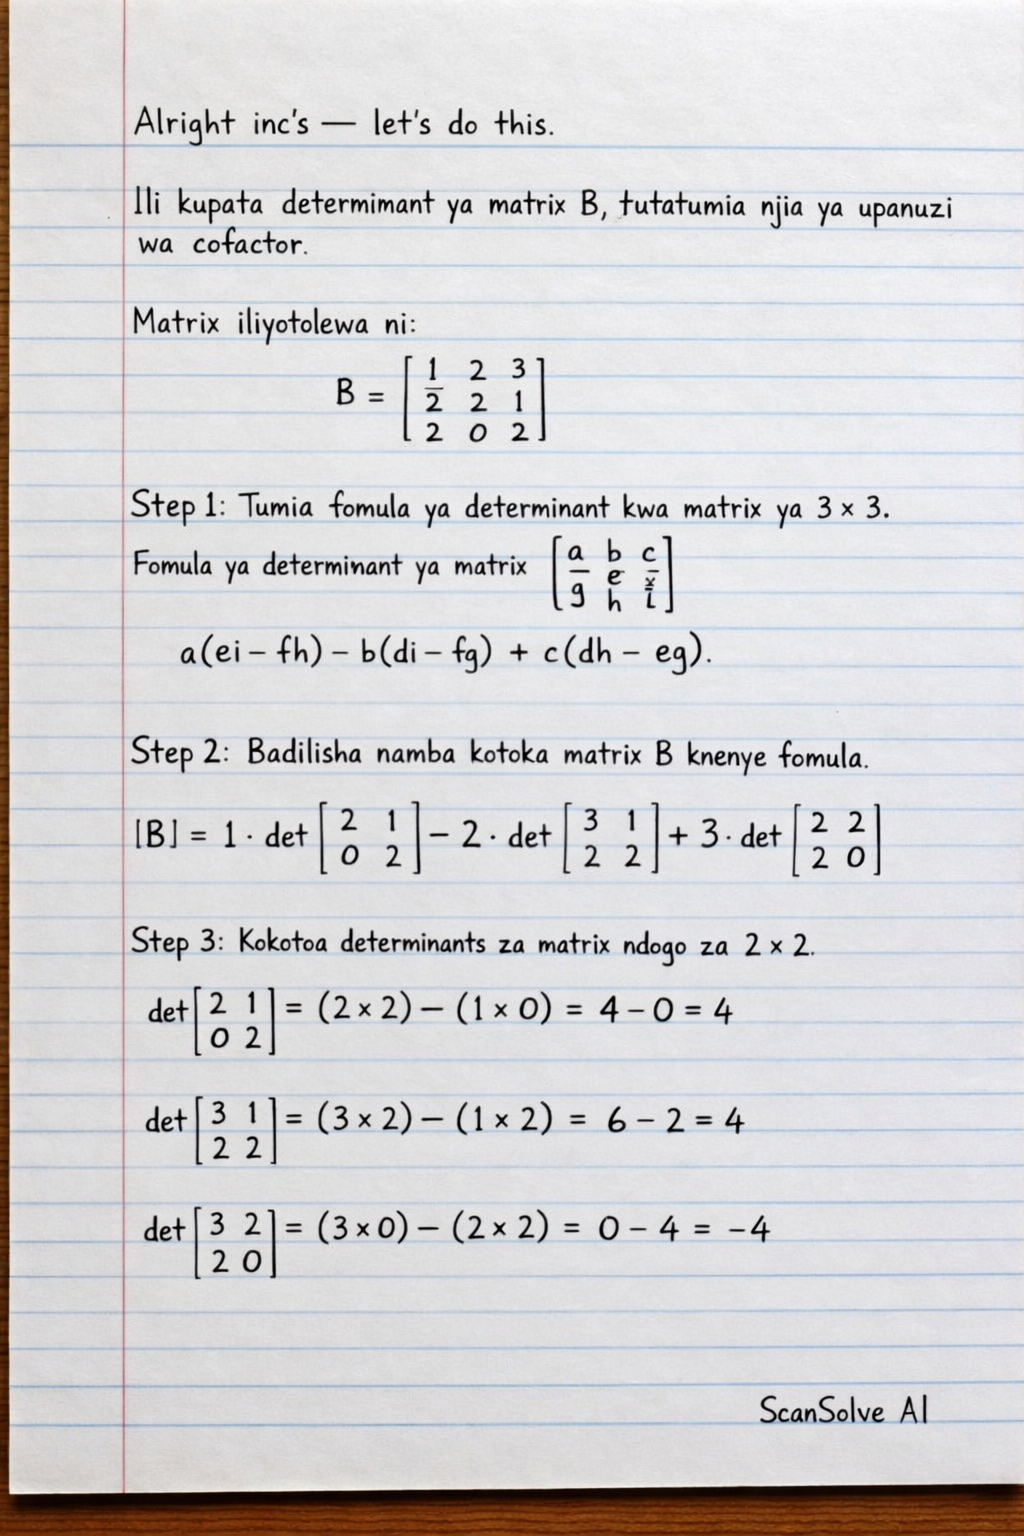 Alright inc's — let's do this.
Ili kupata determimant ya matrix B, tutatumia njia ya upanuzi
wa cofactor.
Matrix iliyotolewa ni:
B = [ 1 2 3
2 2 1
2 0 2 ]
Step 1: Tumia fomula ya determinant kwa matrix ya 3 × 3.
Fomula ya determinant ya matrix [ a b c
e
g h i ]
a(ei – fh) – b(di – fg) + c(dh – eg).
Step 2: Badilisha namba kotoka matrix B knenye fomula.
|B| = 1 · det [ 2 1 0 2 ] – 2 · det [ 3 1 2 2 ] + 3 · det [ 2 2 2 0 ]
Step 3: Kokotoa determinants za matrix ndogo za 2 × 2.
det [ 2 1 0 2 ] = (2 × 2) – (1 × 0) = 4 – 0 = 4
det [ 3 1 2 2 ] = (3 × 2) – (1 × 2) = 6 – 2 = 4
det [ 3 2 2 0 ] = (3 × 0) – (2 × 2) = 0 – 4 = -4
ScanSolve AI